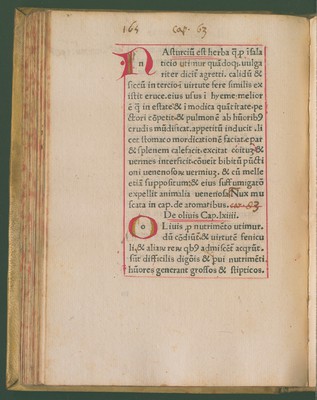 164 cap. 63
NAsturciū est herba q̄ ꝑ isala
ticio utimur quādoq; uulga
riter diciť agretti. calidū &
siccū in tercio: uirtute fere similis ex
istit eruce. eius usus ī hyeme melior
ē q̄ in estate & ī modica quātitate pe
ctori cōpetit & pulmonē ab hūorib9
crudis mūdificat. appetitū inducit. li
cet stomaco mordicationē faciat epar
& splenem calefacit. excitat coitus &
uermes interficit cōueit bibitū pūcti
oni uenenosoɤ uermiuɤ. & cū melle
etiā suppositum; & eius suffumigatō
expellit animalia uenenosa Nux mu
scata in cap. de aromatibus. car. 93.
De oliuis Cap. lxiiii.
OLiuis ꝓ nutrimēto utimur.
dū cōdiūť & uirtutē fenicu
li, & aliaɤ reɤ qb9 admiscēť acqrūť.
sūť difficilis digōis & pui nutrimēti.
hūores generant grossos & stipticos.